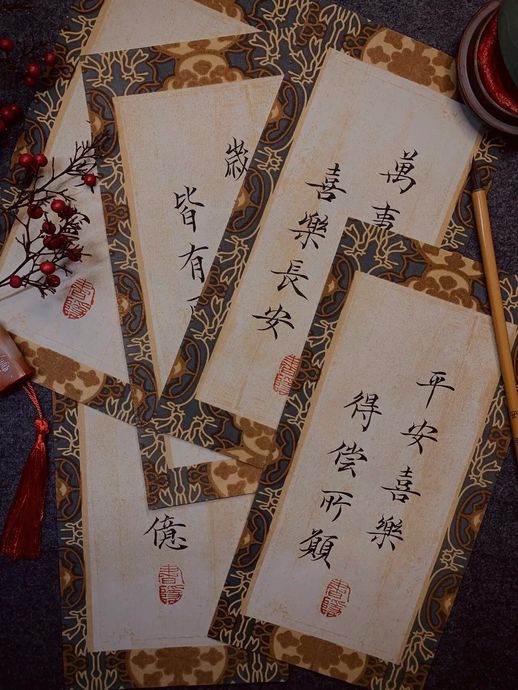 歲
皆有
萬事
喜樂長安
平安喜樂
得偿所願
億